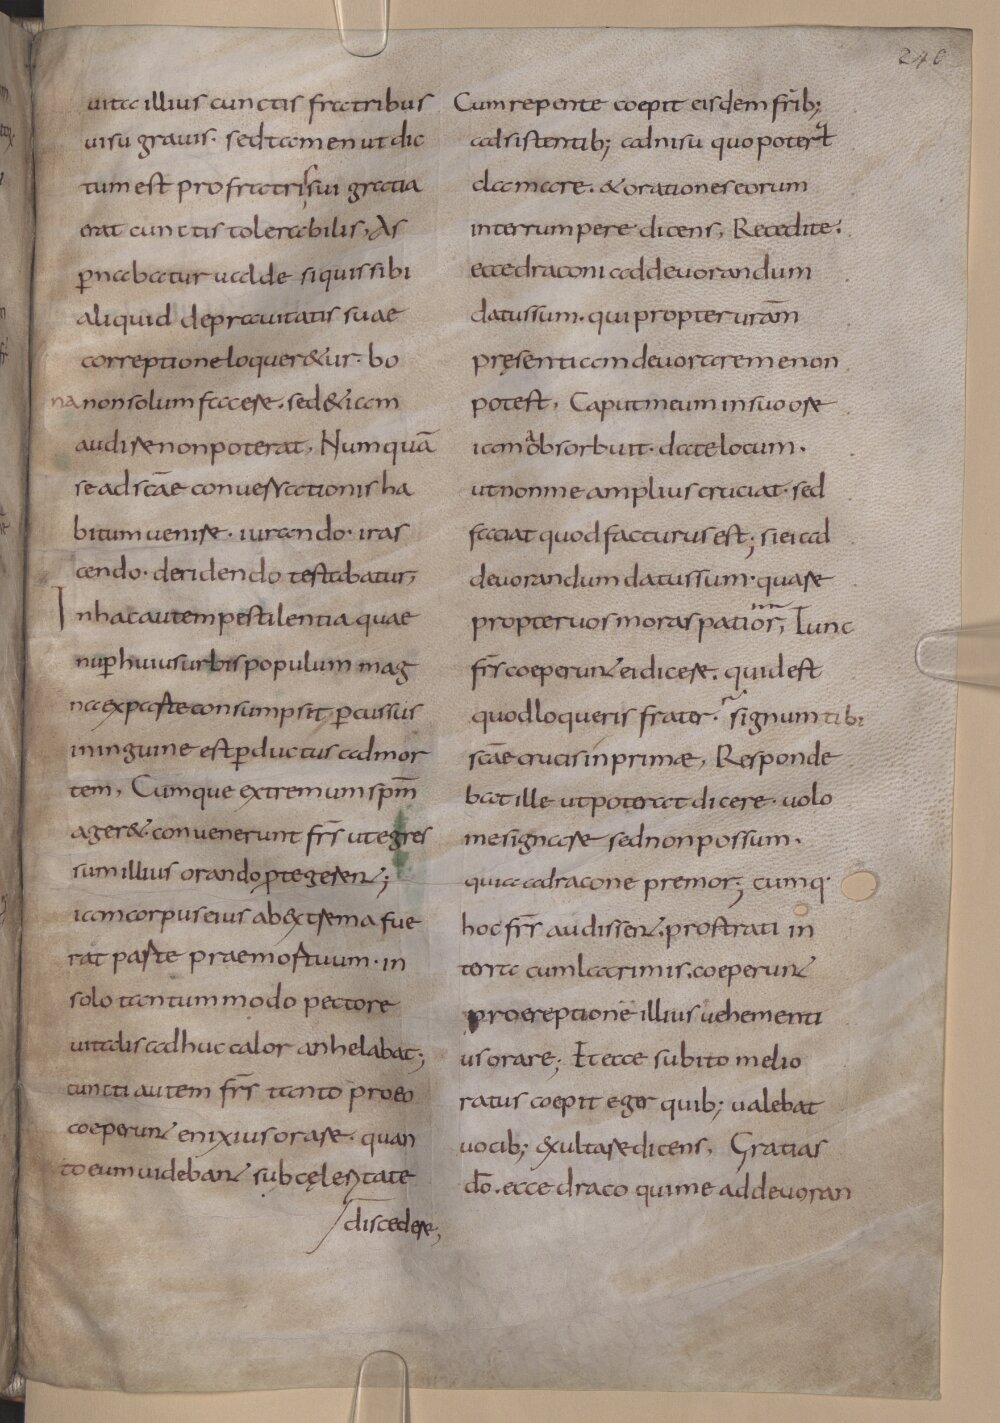 246
uitae illius cunctis fratribus
uisu grauis. sed tamen ut dic
tum est pro fratris sui gratia
erat cunctis tolerabilis, As
p̄nabatur ualde si quis sibi
aliquid de prauitatis suae
correptione loquer&ur. bo
na non solum facere. sed &iam
audire non poterat, Numquā
se ad scāe conuersationis ha
bitum uenire. iurando. iras
cendo. deridendo testabatur,
In hac autem pestilentia quae
nup̄ huius urbis populum mag
na ex parte consumpsit p̄cussus
in inguine est p̄ductus ad mor
tem, Cumque extremum sp̄m
ager&. conuenerunt fr̄s ut egres
sum illius orando ꝓtegerent;
iam corpus eius ab extrema fue
rat parte praemortuum. in
solo tantummodo pectore
uitalis adhuc calor anhelabat;
cuncti autem fr̄s tanto pro eo
coeperunt enixius orare. quan
to eum uidebant sub cęleritate
discedere;
Cum repente coepit eisdem fr̄ib;
adsistentib; ad nisu quo poterat
clamare. & orationes eorum
interrumpere dicens, Recedite.
ecce draconi ad deuorandum
datus sum. qui propter ur̄am
pręsentiam deuorare me non
potest, Caput meum in suo ore
iam absorbuit. date locum.
ut non me amplius cruciat. sed
faciat quod facturus est; si ei ad
deuorandum datus sum. quare
propter uos moras patior, Tunc
fr̄s coeperunt ei dicere. quid est
quod loqueris frater. signum tibi
scāe crucis inprimae, Responde
bat ille ut poterat dicere. uolo
me signare sed non possum.
quia a dracone premor; cumq.
hoc fr̄s audissent. prostrati in
terra cum lacrimis. coeperunt
pro ereptione illius uehementi
us orare; Et ecce subito melio
ratus coepit eger quib; ualebat
uocib; exultare dicens, Gratias
dō. ecce draco qui me ad deuoran